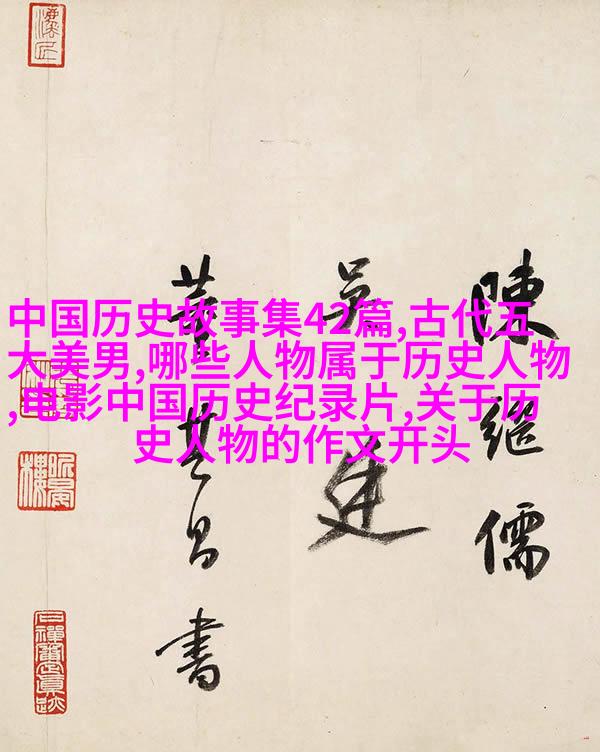 中国历史故事集42篇,古代五
大美男,哪些人物属于历史人物
,电影中国历史纪录片,关于历
史人物的作文开头
陳繼儒
吳廷
董其昌書